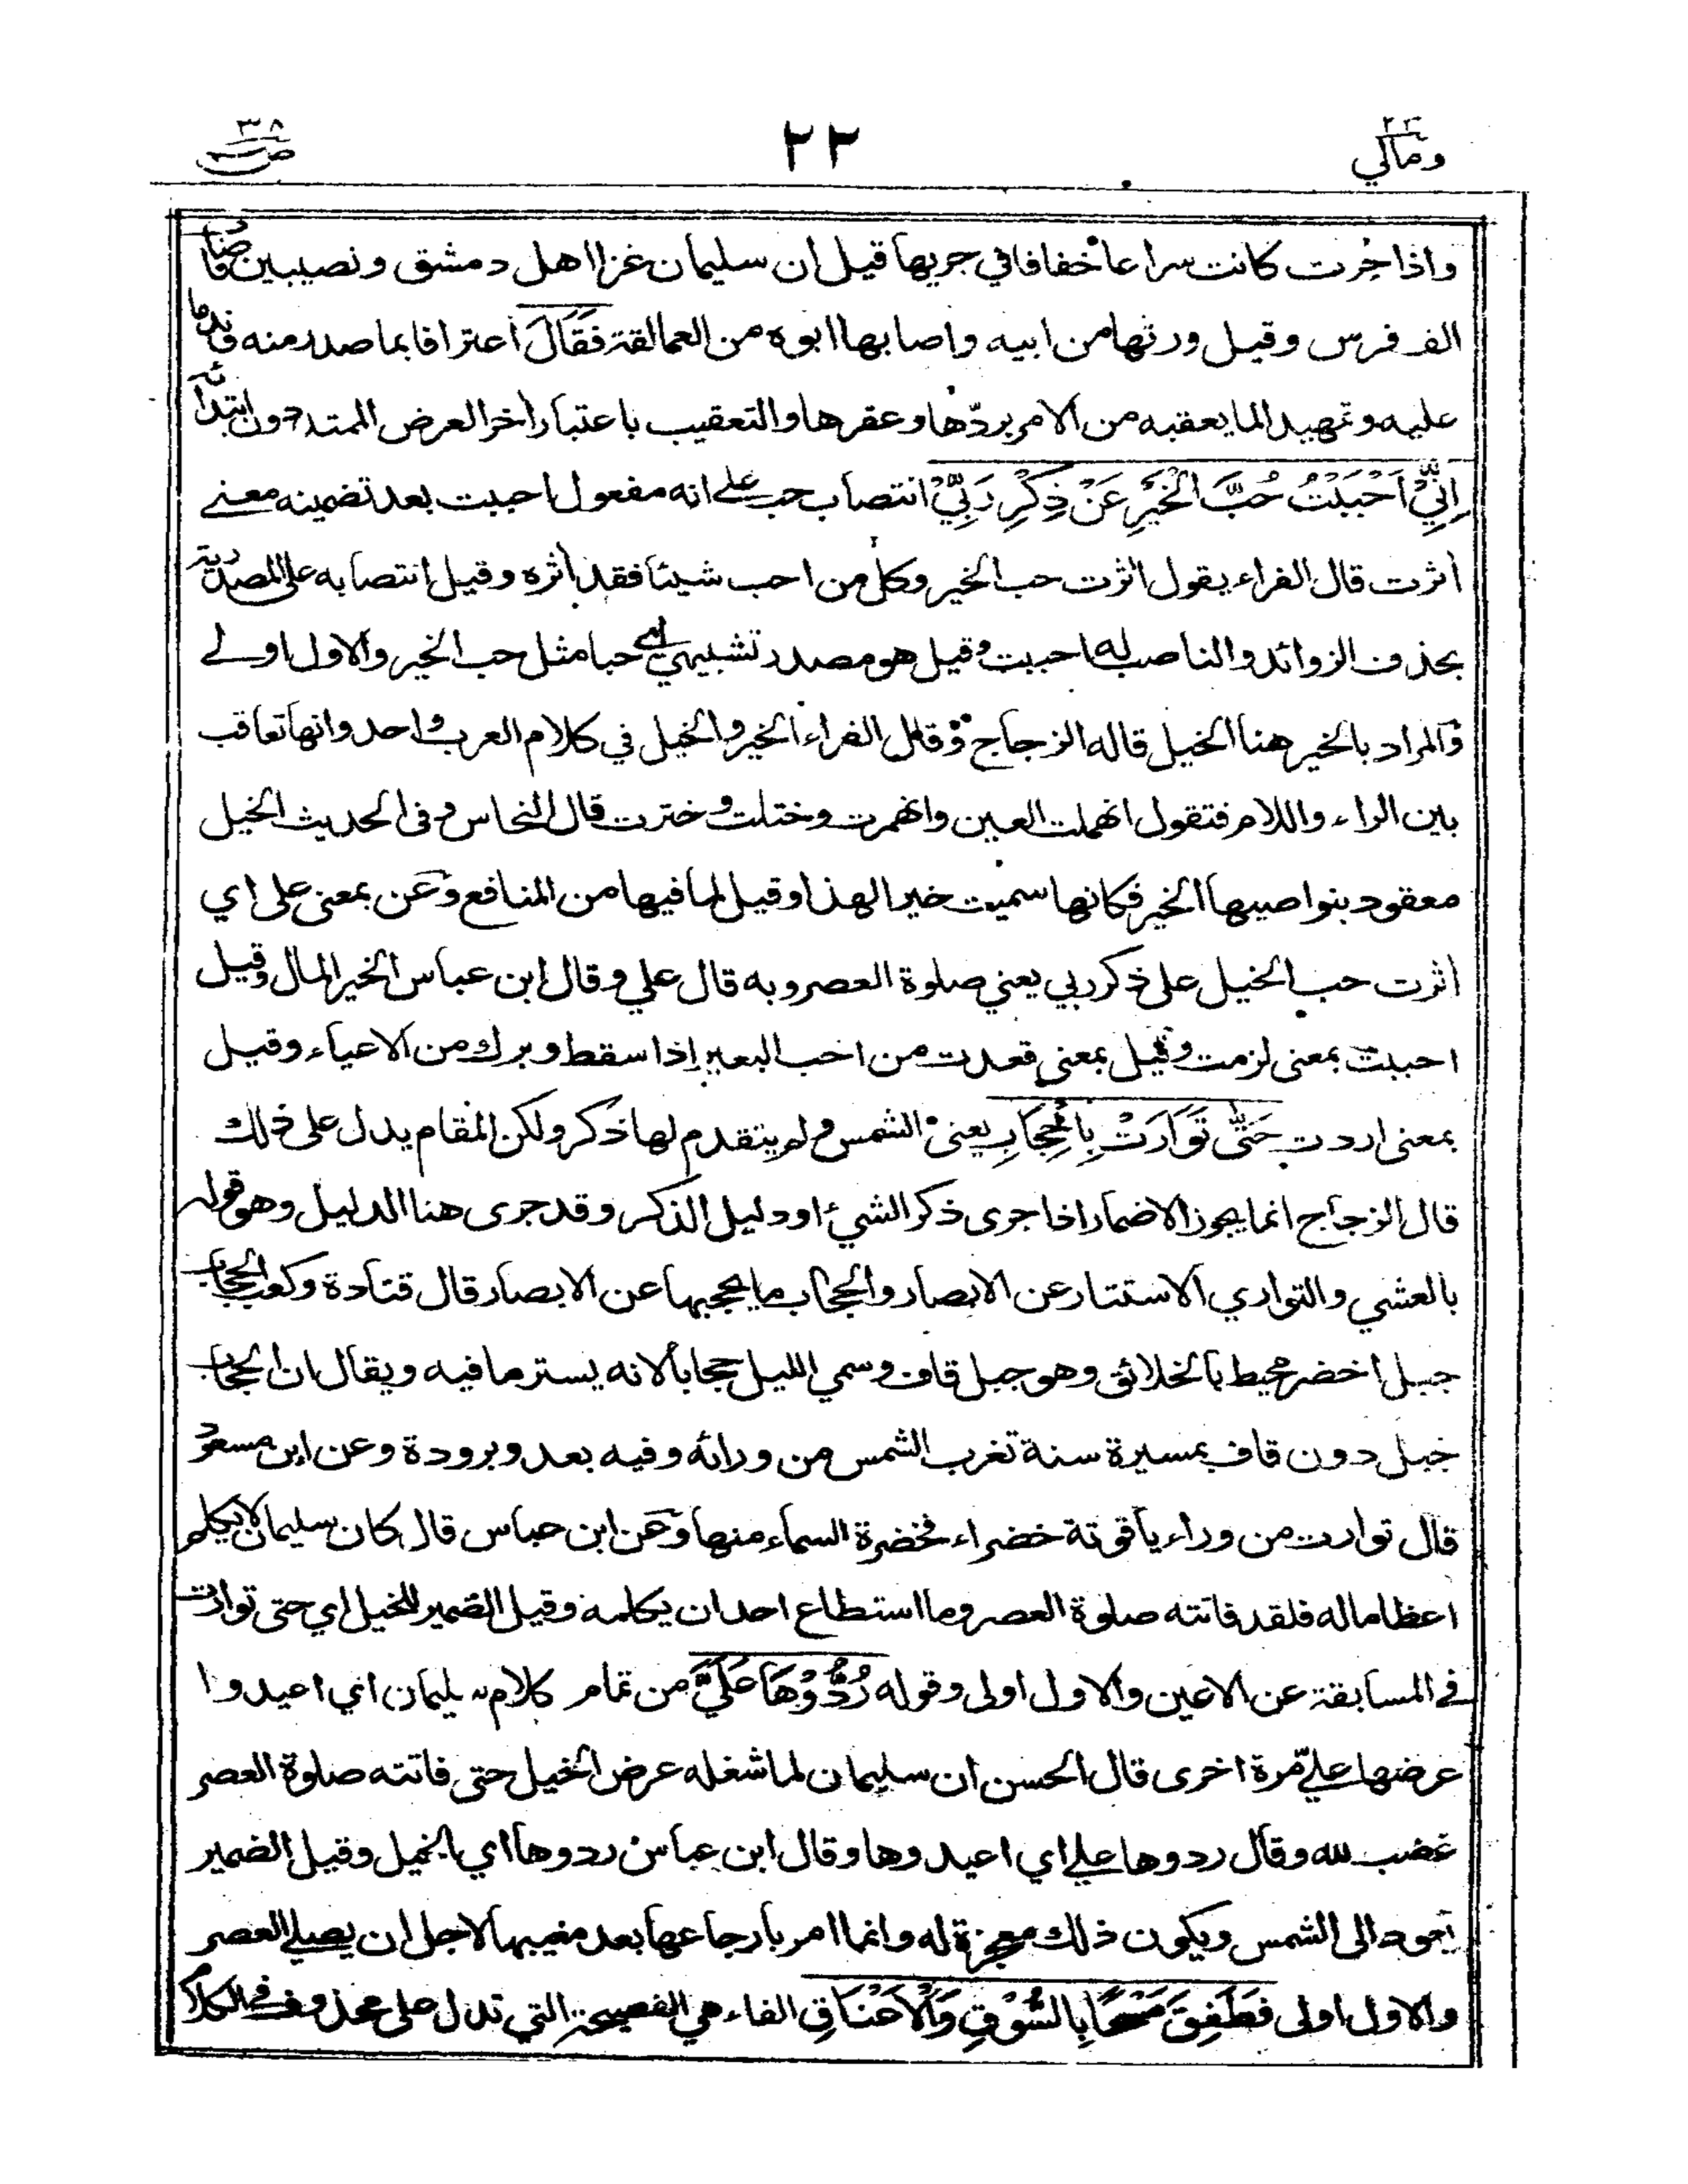 ومالي ٢٣
٢٢
ص ٣٨
واذا جرت كانت سراعا خفافا في جريها قيل ان سليمان غزا اهل دمشق ونصيبين فاصاب
الف فرس وقيل ورثها من ابيه واصابها ابوه من العمالقة فَقَالَ اعترافا بما صدر منه وندما
عليه وتمهيدا لما يعقبه من الامر بردّها وعقرها والتعقيب باعتبار اٰخر العرض الممتد دون ابتدائه
اِنِّيْ اَحْبَبْتُ حُبَّ الْخَيْرِ عَنْ ذِكْرِ رَبِّيْ انتصاب حب على انه مفعول احببت بعد تضمينه معنے
اٰثرت قال الفراء يقول اٰثرت حب الخير وكل من احب شيئا فقد اٰثره وقيل انتصابه على المصدرية
بحذف الزوائد والناصب له احببت وقيل هو مصدر تشبيهي اي حبا مثل حب الخير والاول اولے
والمراد بالخير هنا الخيل قاله الزجاج وقال الفراء الخير والخيل في كلام العرب واحد وانها تعاقب
بين الراء واللام فتقول انهملت العين وانهمرت وختلت وخترت قال النحاس وفى الحديث الخيل
معقود بنواصيها الخير فكانها سميت خيرا لهذا وقيل لما فيها من المنافع وعن بمعنى على اي
اٰثرت حب الخيل على ذكر ربي يعني صلوة العصر وبه قال علي وقال ابن عباس الخير المال وقيل
احببت بمعنى لزمت وقيل بمعنى قعدت من احب البعير اذا سقط وبرك من الاعياء وقيل
بمعنى اردت حَتّٰى تَوَارَتْ بِالْحِجَابِ يعنى الشمس ولم يتقدم لها ذكر ولكن المقام يدل على ذلك
قال الزجاج انما يجوز الاضمار اذا جرى ذكر الشيء او دليل الذكر وقد جرى هنا الدليل وهو قوله
بالعشي والتواري الاستتار عن الابصار والحجاب ما يحجبها عن الابصار قال قتادة وكعب الحجاب
جبل اخضر محيط بالخلائق وهو جبل قاف وسمي الليل حجابا لانه يستر ما فيه ويقال ان الحجاب
جبل دون قاف بمسيرة سنة تغرب الشمس من ورائه وفيه بعد وبرودة وعن ابن مسعود
قال توارت من وراء ياقوتة خضراء فخضرة السماء منها وعن ابن عباس قال كان سليمان لا يكلم
اعظاما له فلقد فاتته صلوة العصر وما استطاع احد ان يكلمه وقيل الضمير للخيل اي حتى توارت
في المسابقة عن الاعين والاول اولى وقوله رُدُّوْهَا عَلَيَّ من تمام كلام سليمان اي اعيدوا
عرضها عليّ مرة اخرى قال الحسن ان سليمان لما شغله عرض الخيل حتى فاتته صلوة العصر
غضب لله وقال ردوها علي اي اعيدوها وقال ابن عباس ردوها اي الخيل وقيل الضمير
يعود الى الشمس ويكون ذلك معجزة له وانما امر بارجاعها بعد مغيبها لاجل ان يصلي العصر
والاول اولى فَطَفِقَ مَسْحًا بِالسُّوْقِ وَالْاَعْنَاقِ الفاء هي الفصيحة التي تدل على محذوف في الكلام